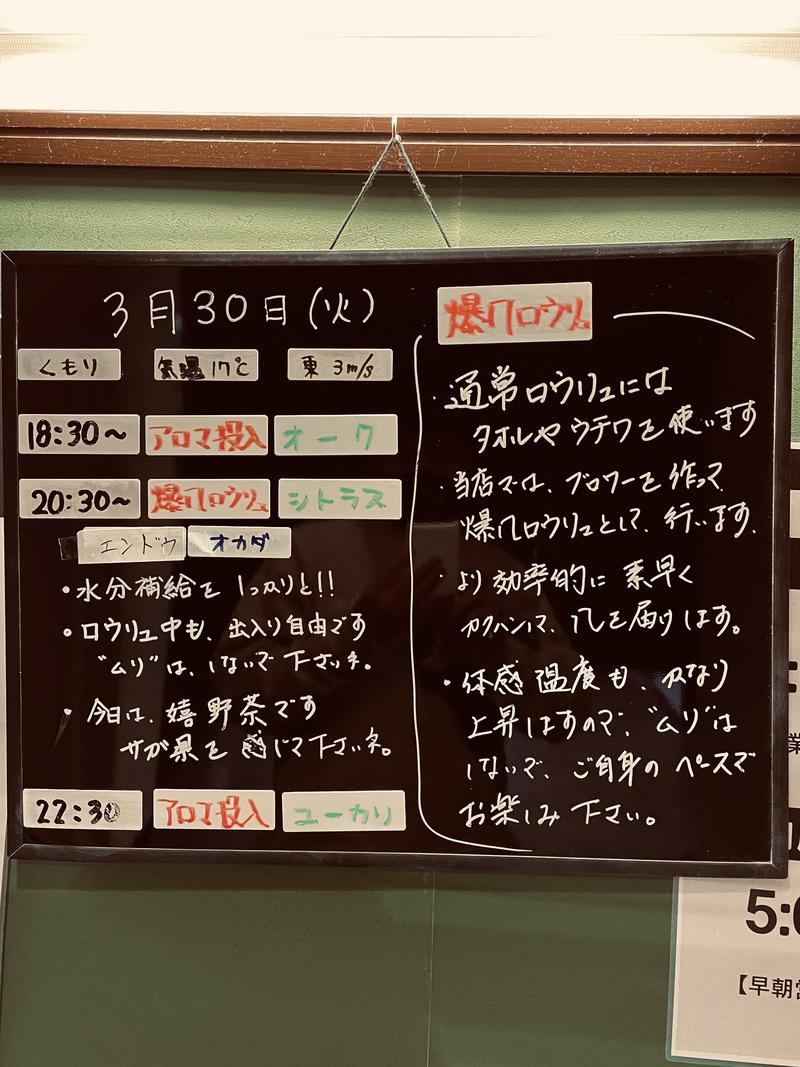 3月30日(火)
くもり 気温17℃ 東 3m/s
18:30〜 アロマ投入 オーク
20:30〜 爆風ロウリュ シトラス
エンドウ オカダ
・水分補給を しっかりと!!
・ロウリュ中も、出入り自由です
"ムリ"は、しないで下さいネ。
・今日は、嬉野茶です
サガ県を感じて下さいネ。
22:30 アロマ投入 ユーカリ
爆風ロウリュ
・通常ロウリュには
タオルやウチワを使います
・当店では、ブロワーを作って
爆風ロウリュとして、行います。
・より効率的に素早く
カクハンして、風を届けします。
・体感温度も、かなり
上昇しますので、"ムリ"は
しないで、ご自身のペースで
お楽しみ下さい。
業
5:0
【早朝営